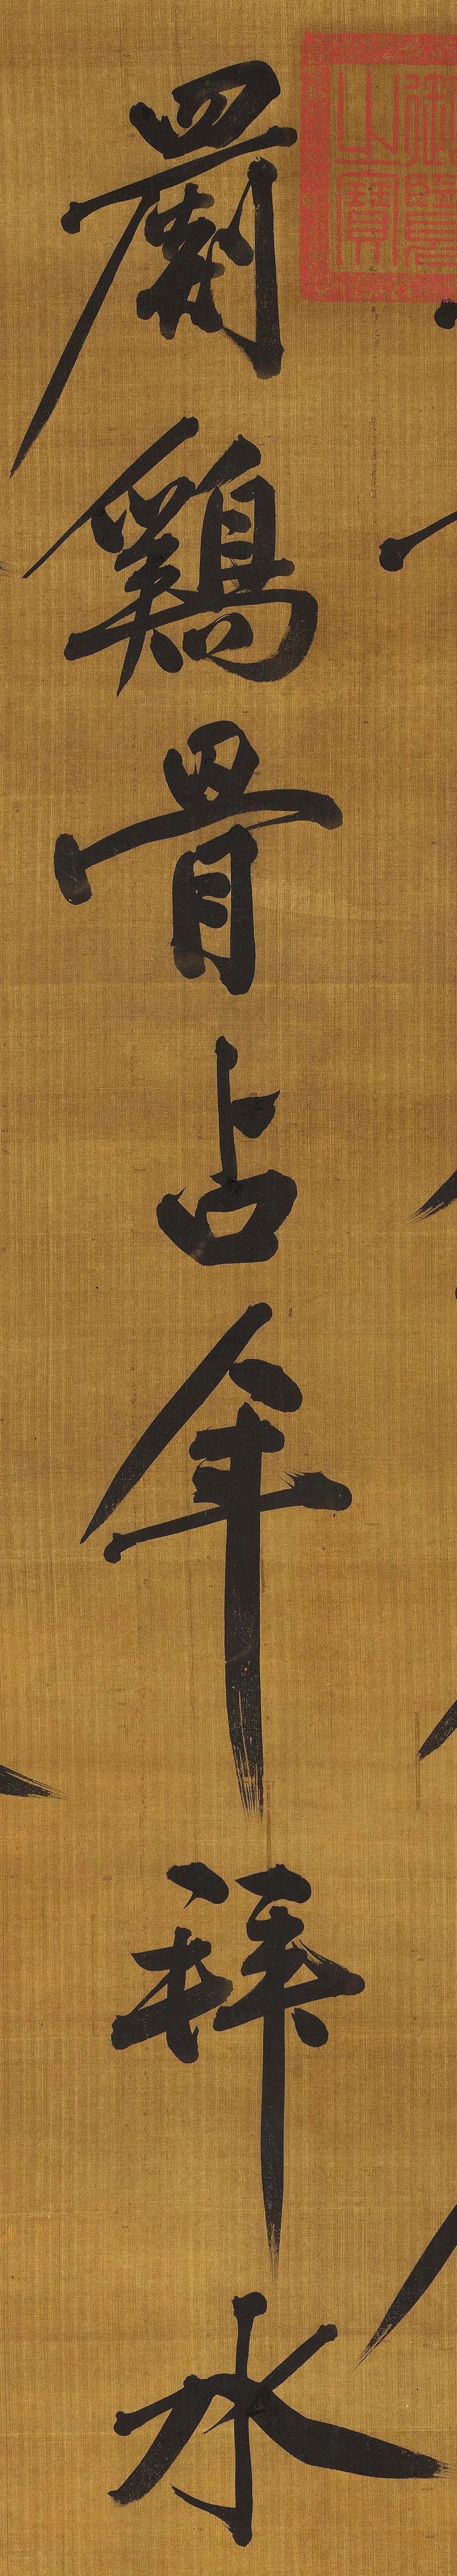 御覽
之寶
罽鷄骨占年拜水